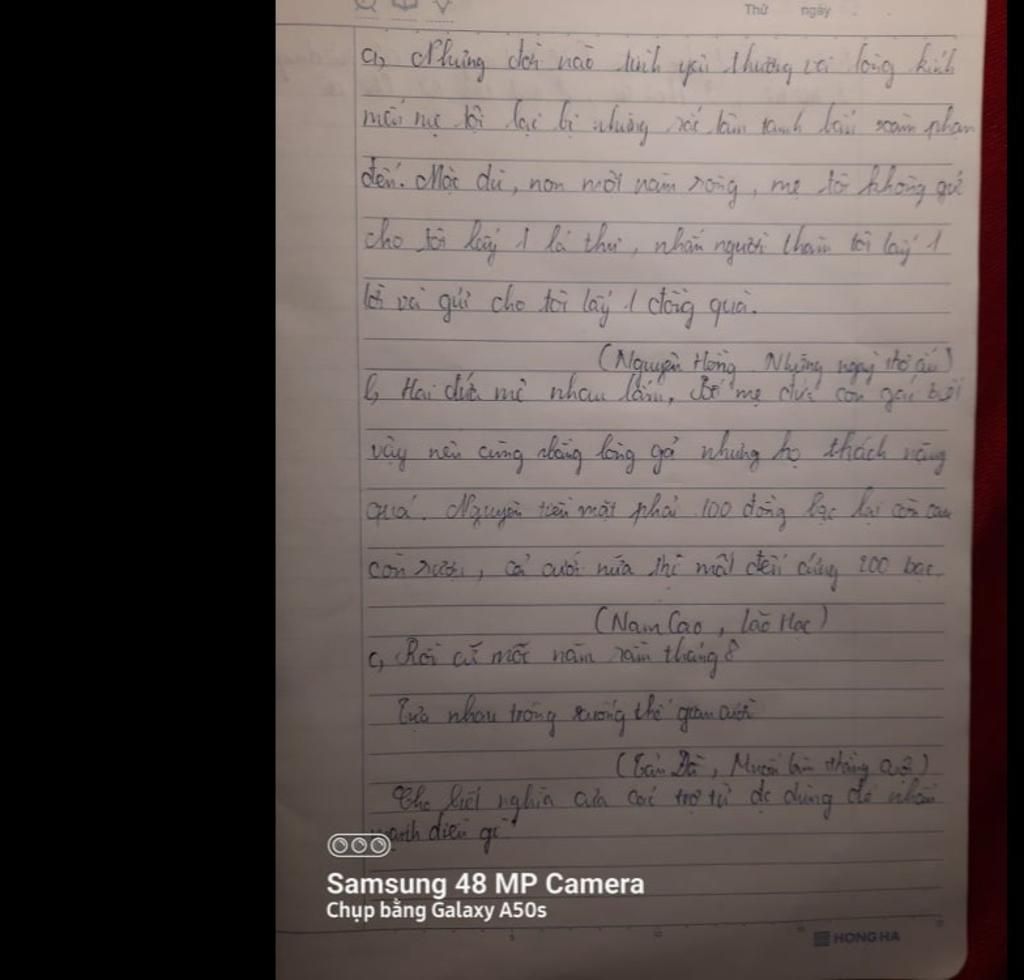 Thứ ngày
a, Nhưng đời nào tình yêu thương và lòng kính
mến mẹ tôi lại bị những rắp tâm tanh bẩn xâm phạm
đến. Mặc dù, non một năm ròng, mẹ tôi không gửi
cho tôi lấy 1 lá thư, nhắn người thăm tôi lấy 1
lời và gửi cho tôi lấy 1 đồng quà.
(Nguyên Hồng Những ngày thơ ấu)
b, Hai đứa mê nhau lắm. Bố mẹ đứa con gái biết
vậy nên cũng bằng lòng gả nhưng họ thách nặng
quá. Nguyên tiền mặt phải 100 đồng bạc lại còn cau
còn rượu, cả cưới nữa thì mất đến cứng 200 bạc.
(Nam Cao, Lão Hạc)
c, Rồi cứ mỗi năm rằm tháng 8
Tựa nhau trông xuống thế gian cười
(Tản Đà, Muốn làm thằng cuội)
Cho biết nghĩa của các trợ từ đc dùng để nhấn
mạnh điều gì
Samsung 48 MP Camera
Chụp bằng Galaxy A50s
HONG HA